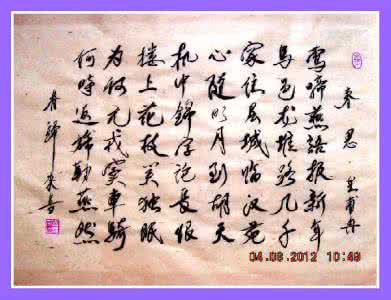 春思 皇甫冉
莺啼燕语报新年
马邑龙堆路几千
家住层城临汉苑
心随明月到胡天
机中锦字论长恨
楼上花枝笑独眠
为问元戎窦车骑
何时返旆勒燕然
04.08.2012 10:49